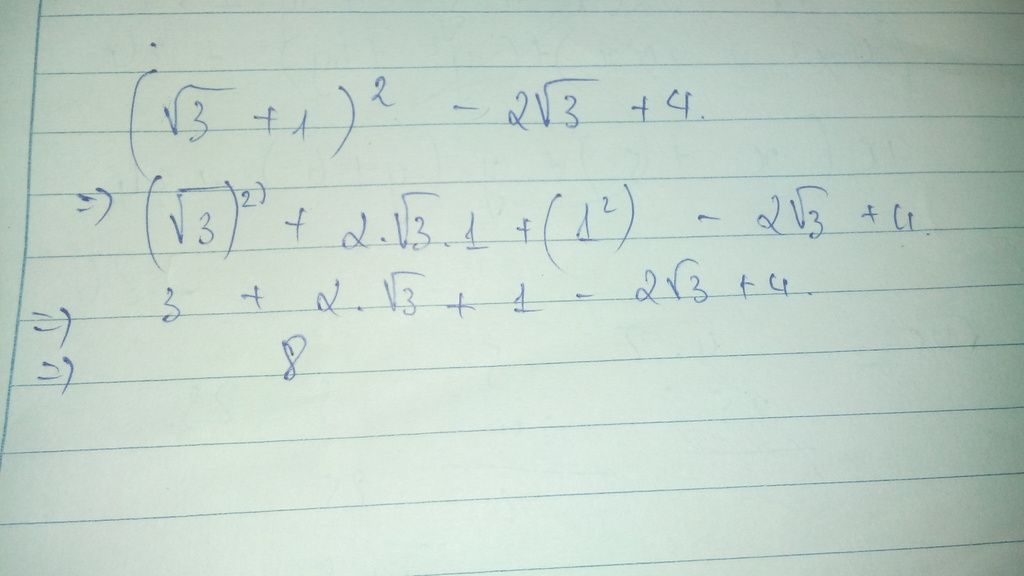 (√3 + 1)² - 2√3 + 4.
=> (√3)²⁾ + 2.√3.1 + (1²) - 2√3 + 4.
=> 3 + 2.√3 + 1 - 2√3 + 4.
=> 8